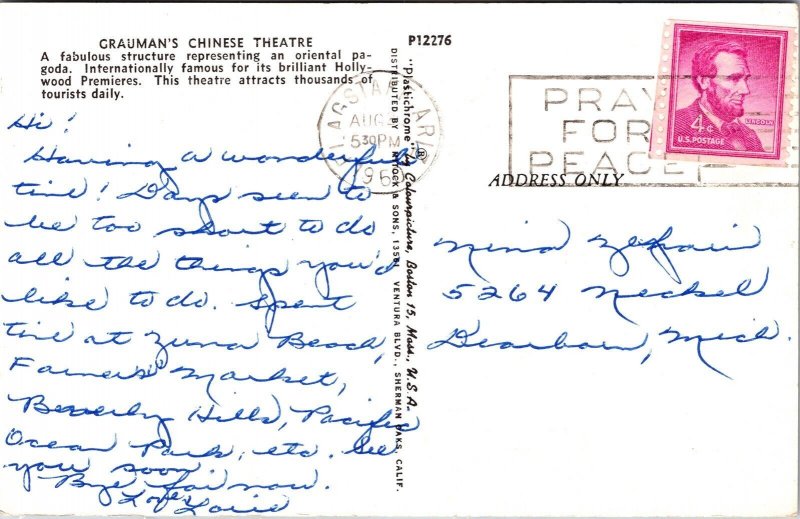 GRAUMAN'S CHINESE THEATRE
A fabulous structure representing an oriental pa-
goda. Internationally famous for its brilliant Holly-
wood Premieres. This theatre attracts thousands of
tourists daily.
Hi!
Having a wonderful
time! Days seem to
be too short to do
all the things you'd
like to do. Spent
time at Zuma Beach,
Farmers Market,
Beverly Hills, Pacific
Ocean Park, etc. See
you soon.
Bye for now.
Love
Lorie
P12276
DISTRIBUTED BY & SONS, 13561 VENTURA BLVD., SHERMAN OAKS, CALIF.
"Plastichrome"® by Colourpicture, Boston 15, Mass., U.S.A.
FLAGSTAFF, ARIZ
AUG
530PM
196
PRAY
FOR
PEACE
LINCOLN
4¢
U.S. POSTAGE
ADDRESS ONLY
Nina
5264 Neckel
Dearborn, Mich.